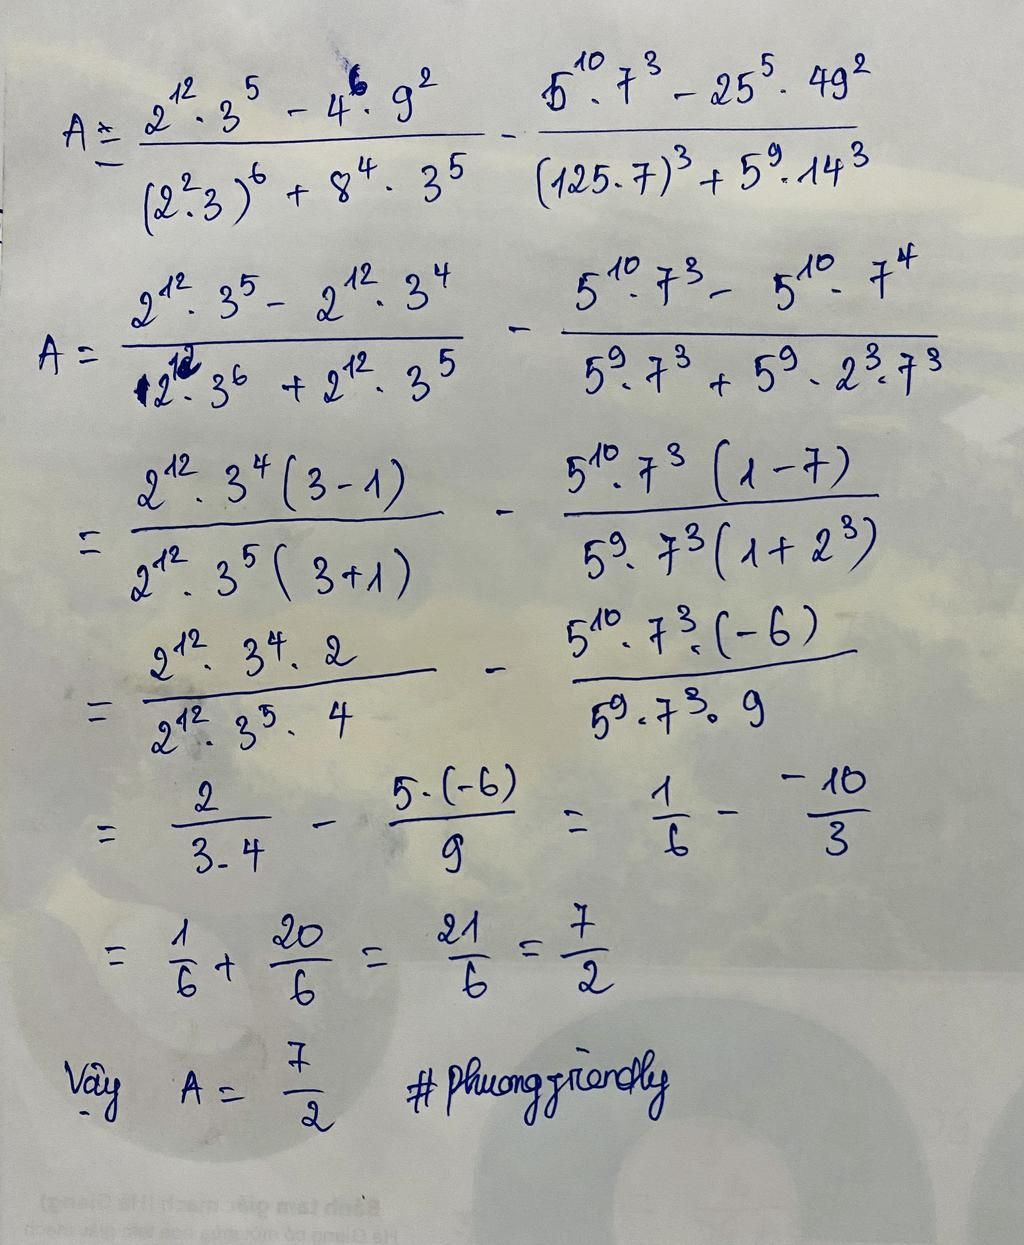 A = (2^12 . 3^5 - 4^6 . 9^2)/((2^2 . 3)^6 + 8^4 . 3^5) - (5^10 . 7^3 - 25^5 . 49^2)/((125 . 7)^3 + 5^9 . 14^3)
A = (2^12 . 3^5 - 2^12 . 3^4)/(2^12 . 3^6 + 2^12 . 3^5) - (5^10 . 7^3 - 5^10 . 7^4)/(5^9 . 7^3 + 5^9 . 2^3 . 7^3)
= (2^12 . 3^4 (3 - 1))/(2^12 . 3^5 (3 + 1)) - (5^10 . 7^3 (1 - 7))/(5^9 . 7^3 (1 + 2^3))
= (2^12 . 3^4 . 2)/(2^12 . 3^5 . 4) - (5^10 . 7^3 . (-6))/(5^9 . 7^3 . 9)
= 2/(3 . 4) - (5 . (-6))/9 = 1/6 - (-10)/3
= 1/6 + 20/6 = 21/6 = 7/2
Vậy A = 7/2 #phuongfriendly